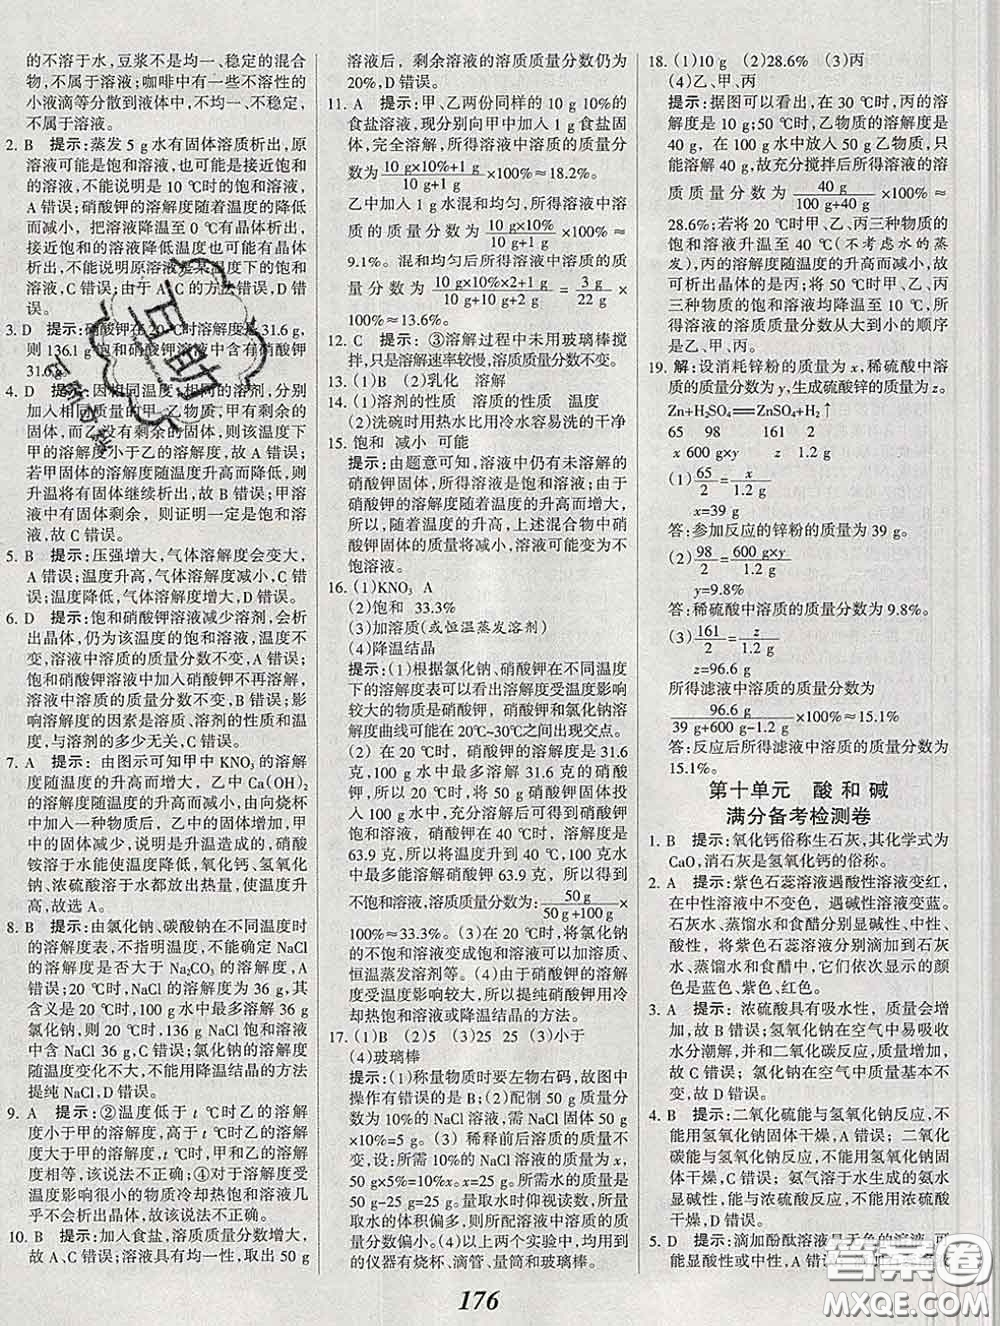 的不溶于水,豆浆不是均一、稳定的混合
物,不属于溶液;咖啡中有一些不溶性的
小液滴等分散到液体中,不均一、不稳定,
不属于溶液。
2. B 提示:蒸发 5 g 水有固体溶质析出,原
溶液可能是饱和溶液,也可能是接近饱和
的溶液,不能说明是 10 ℃时的饱和溶液,
A 错误;硝酸钾的溶解度随着温度的降低
而减小,把原溶液降温至 0 ℃有晶体析出,
接近饱和的溶液降低温度也可能有晶体
析出,不能说明原溶液是某温度下的饱和
溶液,C 错误;由于 A、C 的方法错误,D 错
误。
3. D 提示:硝酸钾在 20 ℃时溶解度是 31.6 g,
则 136.1 g 饱和硝酸钾溶液中含有硝酸钾
31.6 g。
4. D 提示:因相同温度,相同的溶剂,分别
加入相同质量的甲、乙物质,甲有剩余的
固体,而乙没有剩余固体,则该温度下
甲的溶解度小于乙的溶解度,故 A 错误;
若甲固体的溶解度随温度升高而降低,则
升温将有固体继续析出,故 B 错误;甲溶
液中有固体剩余,则证明一定是饱和溶
液,故 C 错误。
5. B 提示:压强增大,气体溶解度会变大,
A 错误;温度升高,气体溶解度减小,C 错
误;温度降低,气体溶解度增大,D 错误。
6. D 提示:饱和硝酸钾溶液减少溶剂,会析
出晶体,仍为该温度的饱和溶液,温度
不变,溶液中溶质的质量分数不变,A 错误;
饱和硝酸钾溶液中加入硝酸钾不再溶解,
溶液中溶质的质量分数不变,B 错误;影
响溶解度的因素是溶质、溶剂的性质和温
度,与溶剂的多少无关,C 错误。
7. A 提示:由图示可知甲中 KNO₃ 的溶解
度随温度的升高而增大,乙中 Ca(OH)₂
的溶解度随温度的升高而减小,向烧杯
中加入一种物质后,乙中的固体增加,甲
中的固体减少,说明是升温造成的,硝酸
铵溶于水能使温度降低,氧化钙、氢氧化
钠、浓硫酸溶于水都放出热量,使温度升
高,故选 A。
8. B 提示:由氯化钠、碳酸钠在不同温度时
的溶解度表,不指明温度,不能确定 NaCl
的溶解度是否大于 Na₂CO₃ 的溶解度,A 错
误;20 ℃时,NaCl 的溶解度为 36 g,其
含义是 20 ℃时,100 g 水中最多溶解 36 g
氯化钠,则 20 ℃时,136 g NaCl 饱和溶液
中含 NaCl 36 g,C 错误;氯化钠的溶解度
随温度变化不大,不能用降温结晶的方法
提纯 NaCl,D 错误。
9. A 提示:②温度低于 t ℃时乙的溶解度
小于甲的溶解度,高于 t ℃时乙的溶解度
大于甲的溶解度,t ℃时,甲和乙的溶解
度相等,该说法不正确;④对于溶解度受
温度影响很小的物质冷却热饱和溶液几
乎不会析出晶体,故该说法不正确。
10. B 提示:加入食盐,溶质质量分数增大,
故 A、C 错误;溶液具有均一性,取出 50 g
溶液后,剩余溶液的溶质质量分数仍为
20%,D 错误。
11. A 提示:甲、乙两份同样的 10 g 10%的
食盐溶液,现分别向甲中加入 1 g 食盐固
体,完全溶解,所得溶液中溶质的质量分
数为 (10 g×10%+1 g)/(10 g+1 g) ×100%≈18.2%。
乙中加入 1 g 水混和均匀,所得溶液中溶
质的质量分数为 (10 g×10%)/(10 g+1 g) ×100%≈
9.1%。混和均匀后所得溶液中溶质的质
量分数为 (10 g×10%×2+1 g)/(10 g+10 g+2 g) = 3 g/22 g
×100%≈13.6%。
12. C 提示:③溶解过程中未用玻璃棒搅
拌,只是溶解速率较慢,溶质质量分数不变。
13. (1)B (2)乳化 溶解
14. (1)溶剂的性质 溶质的性质 温度
(2)洗碗时用热水比用冷水容易洗的干净
15. 饱和 减小 可能
提示:由题意可知,溶液中仍有未溶解的
硝酸钾固体,所得溶液是饱和溶液;由于
硝酸钾的溶解度随着温度的升高而增大,
所以,随着温度的升高,上述混合物中硝
酸钾固体的质量将减小,溶液可能变为不
饱和溶液。
16. (1)KNO₃ A
(2)饱和 33.3%
(3)加溶质(或恒温蒸发溶剂)
(4)降温结晶
提示:(1)根据氯化钠、硝酸钾在不同温度
下的溶解度表可以看出溶解度受温度影响
较大的物质是硝酸钾,硝酸钾和氯化钠溶
解度曲线可能在 20℃~30℃之间出现交点。
(2)在 20 ℃时,硝酸钾的溶解度是 31.6
克,100 g 水中最多溶解 31.6 克的硝酸
钾,所以 20 ℃时,将 50 g 硝酸钾固体投
入 100 g 水中,充分溶解后所得的溶液是
饱和溶液;50 ℃时,硝酸钾的溶解度是
63.9 克,100 g 水中最多溶解硝酸钾是
63.9 克,所以 50 g 会完全溶解,所以得到
不饱和溶液,溶质质量分数为: 50 g/(50 g+100 g) ×
100%≈33.3%。(3)在 20 ℃时,将氯化钠
的不饱和溶液变成饱和溶液可以加溶质、
恒温蒸发溶剂等。(4)由于硝酸钾的溶解
度受温度影响较大,所以提纯硝酸钾可用
冷却热饱和溶液或降温结晶的方法。
17. (1)B (2)5 (3)25 25 (3)小于
(4)玻璃棒
提示:(1)称量物质时要左物右码,故图中
操作有错误的是 B;(2)配制 50 g 质量分
数为 10%的 NaCl 溶液,需 NaCl 固体 50 g
×10%=5 g。(3)稀释前后溶质的质量不
变,设:所需 10%的 NaCl 溶液的质量为 x,
50 g×5%=x×10%,x=25 g。所需水的质量
是 50 g-25 g=25 g。量取水时仰视读数,量
取水的体积偏大,则所配溶液的质量分数
偏小。(4)以上两个实验中,均用到
的仪器有烧杯、滴管、量筒和玻璃棒。
18. (1)10 g (2)28.6% (3)丙
(4)乙、甲、丙
提示:据图可以看出,在 30 ℃时,丙的溶
解度是 10 g;50 ℃时,乙物质的溶解度是
40 g,在 100 g 水中放入 50 g 乙物质,只
能溶解 40 g,故充分搅拌后所得溶液的溶
质质量分数为 40 g/(100 g+40 g) ×100%≈
28.6%;若将 20 ℃时甲、乙、丙三种物质的
饱和溶液升温至 40 ℃(不考虑水的蒸
发),丙的溶解度随温度的升高而减小,故
可知析出晶体的是丙;将 50 ℃时甲、乙、
丙三种物质的饱和溶液均降温至 10 ℃,所
得溶液的溶质质量分数从大到小的顺序
是乙、甲、丙。
19. 解:设消耗锌粉的质量为 x,稀硫酸中溶质
的质量分数为 y,生成硫酸锌的质量为 z。
Zn+H₂SO₄══ZnSO₄+H₂↑
65 98 161 2
x 600 g×y z 1.2 g
(1) 65/2 = x/1.2 g
x=39 g
答:参加反应的锌粉的质量为 39 g。
(2) 98/2 = 600 g×y/1.2 g
y=9.8%
答:稀硫酸中溶质的质量分数为 9.8%。
(3) 161/2 = z/1.2 g
z=96.6 g
所得滤液中溶质的质量分数为
96.6 g/(39 g+600 g-1.2 g) ×100%≈15.1%
答:反应后所得滤液中溶质的质量分数为
15.1%。
第十单元 酸和碱
满分备考检测卷
1. B 提示:氧化钙俗称生石灰,其化学式为
CaO,消石灰是氢氧化钙的俗称。
2. A 提示:紫色石蕊溶液遇酸性溶液变红,
在中性溶液中不变色,遇碱性溶液变蓝。
石灰水、蒸馏水和食醋分别显碱性、中性、
酸性,将紫色石蕊溶液分别滴加到石灰
水、蒸馏水和食醋中,它们依次显示的颜
色是蓝色、紫色、红色。
3. A 提示:浓硫酸具有吸水性,质量会增
加,故 B 错误;氢氧化钠在空气中易吸收
水分潮解,并和二氧化碳反应,质量增大,
故 C 错误;氯化钠在空气中质量基本不
变,故 D 错误。
4. B 提示:二氧化硫能与氢氧化钠反应,不
能用氢氧化钠固体干燥,A 错误;二氧化
碳能与氢氧化钠反应,不能用氢氧化钠固
体干燥,C 错误;氨气溶于水生成的氨水
显碱性,能与浓硫酸反应,不能用浓硫酸
干燥,D 错误。
5. D 提示:滴加酚酞溶液显无色的溶液,可能
176
互助
答案圈
MXQE.COM